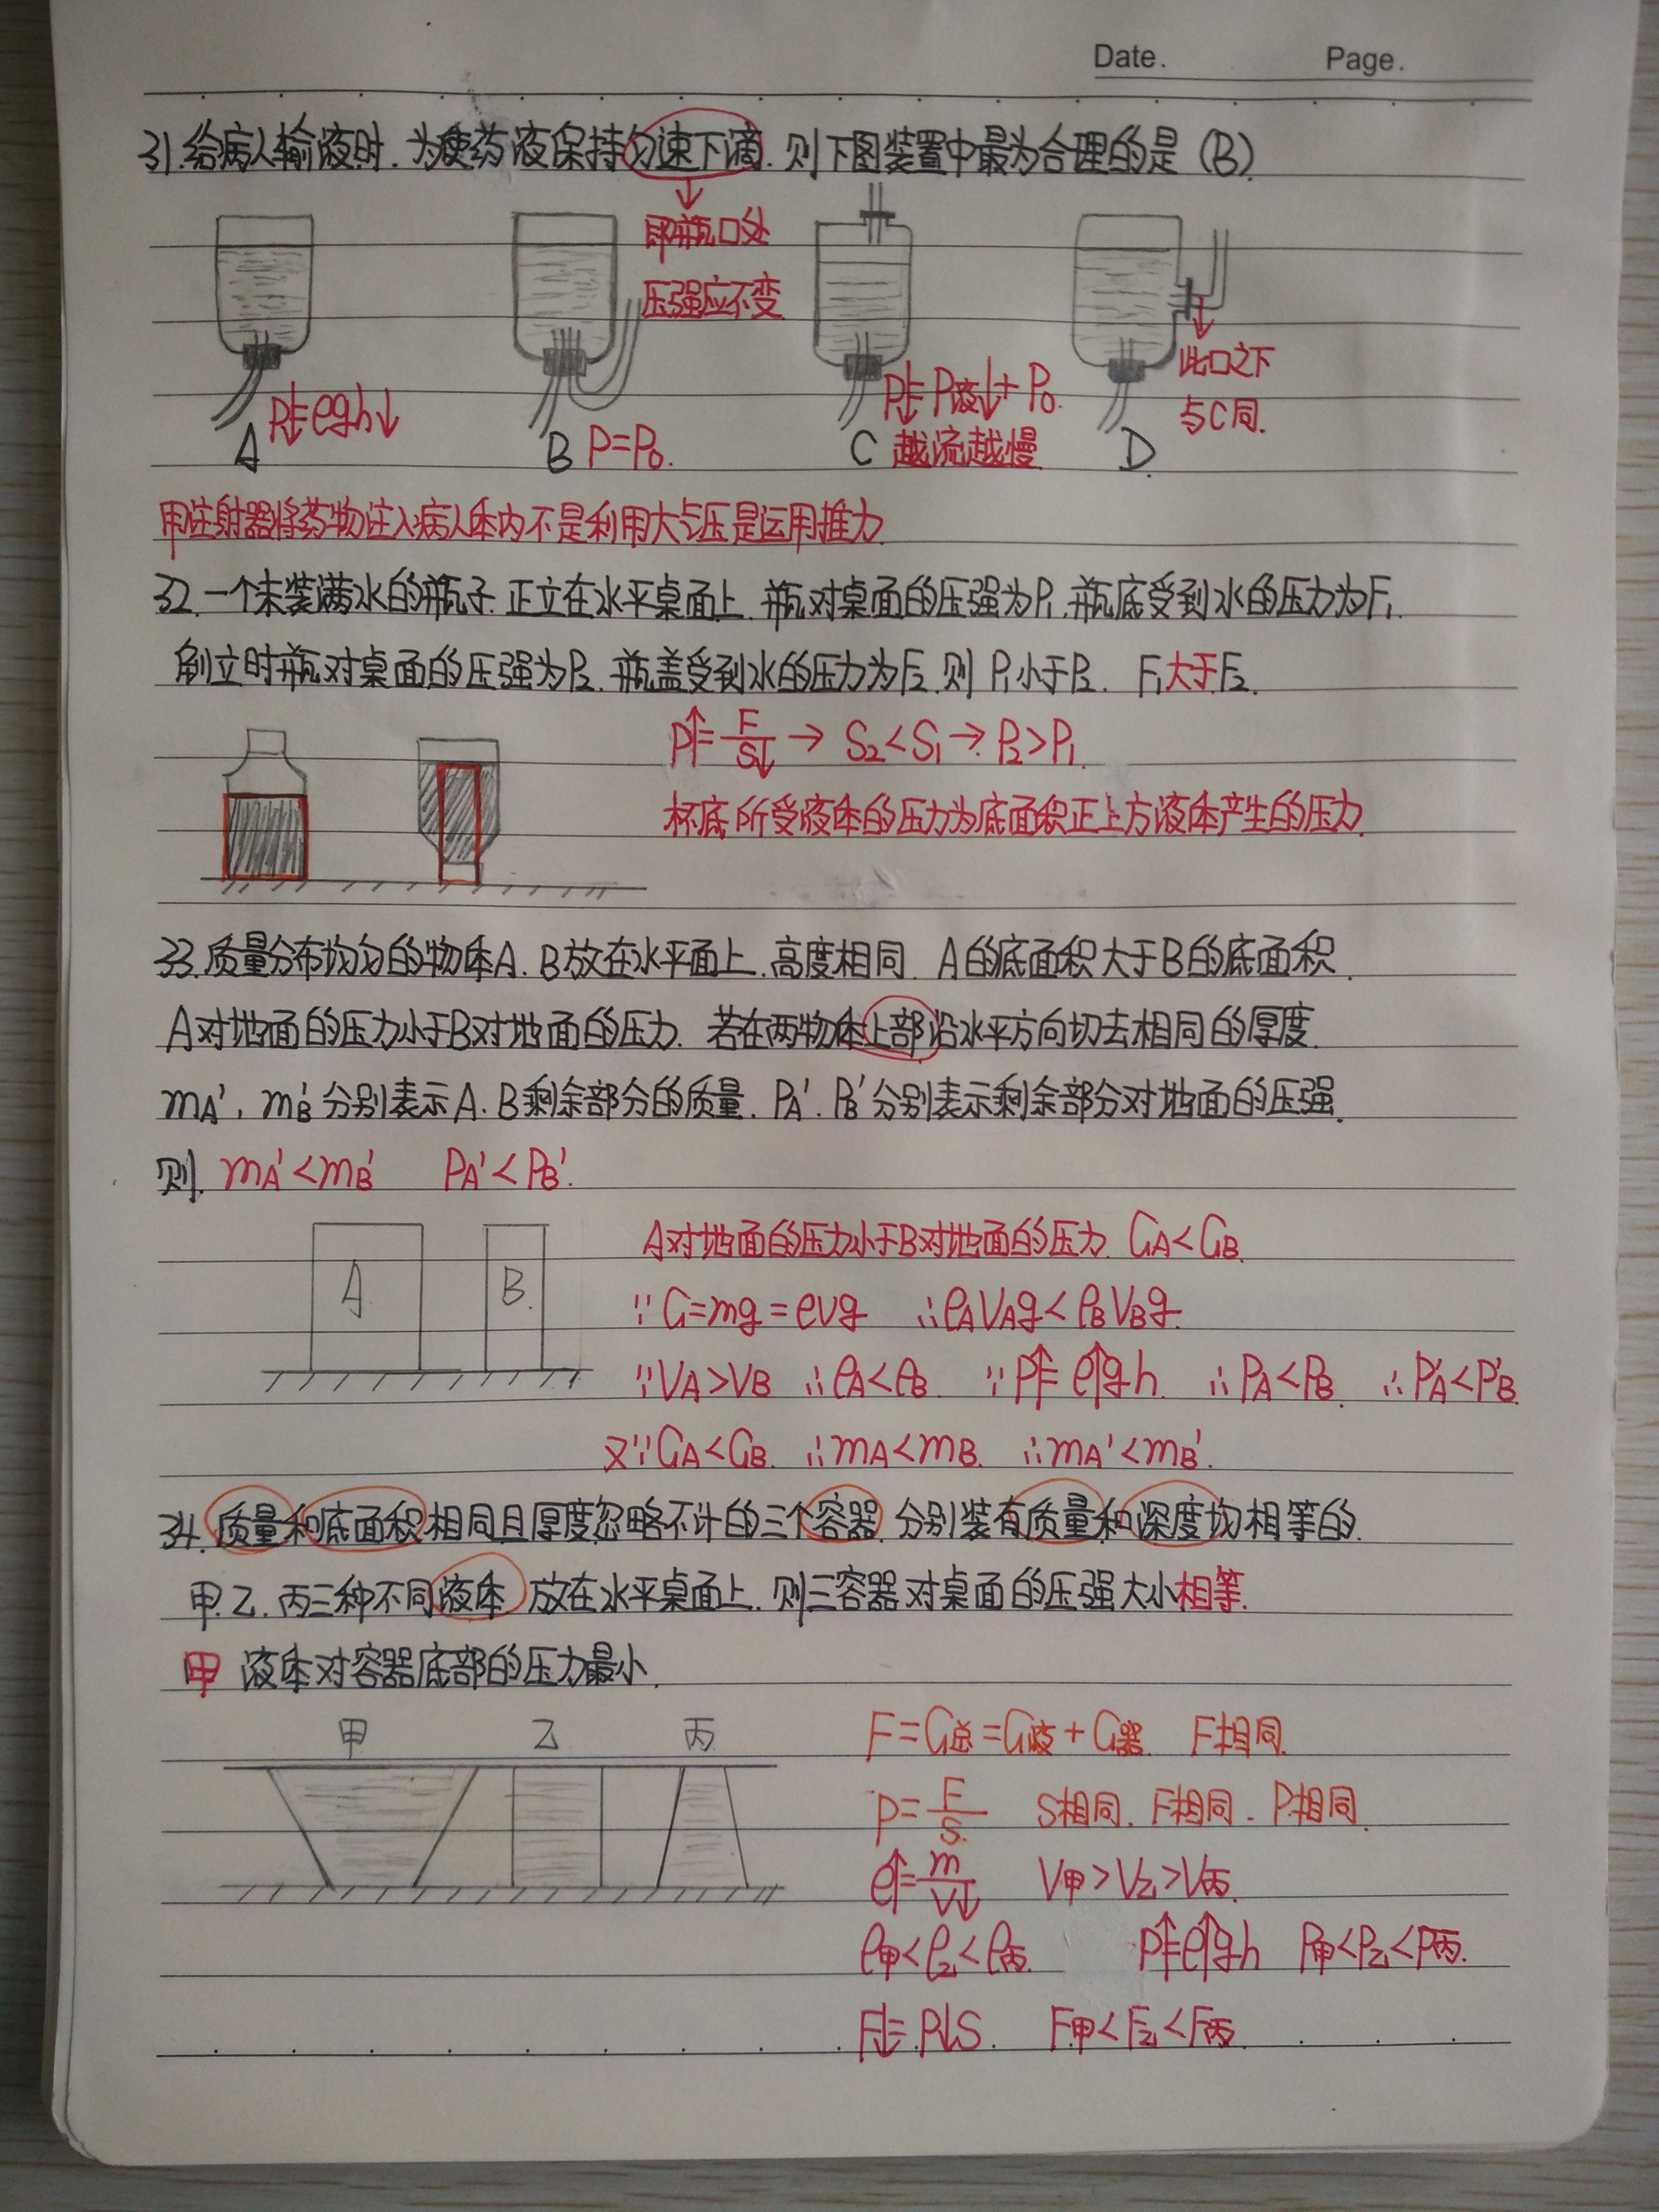 Date.
Page.
31.给病人输液时.为使药液保持匀速下滴.则下图装置中最为合理的是(B).
即瓶口处
压强应不变
此口之下
与C同.
P↓=ρgh↓
P↓=P液↓+P0.
A
B P=P0.
C 越流越慢
D.
用注射器将药物注入病人体内不是利用大气压是运用推力.
32.一个未装满水的瓶子.正立在水平桌面上.瓶对桌面的压强为P1.瓶底受到水的压力为F1.
倒立时瓶对桌面的压强为P2.瓶盖受到水的压力为F2.则P1小于P2. F1大于F2.
P↑=F/S↓→S2<S1→P2>P1.
杯底所受液体的压力为底面积正上方液体产生的压力.
33.质量分布均匀的物体A.B放在水平面上.高度相同.A的底面积大于B的底面积.
A对地面的压力小于B对地面的压力.若在两物体上部沿水平方向切去相同的厚度.
mA'、mB'分别表示A.B剩余部分的质量.PA'.PB'分别表示剩余部分对地面的压强.
则.mA'<mB' PA'<PB'.
A
B.
A对地面的压力小于B对地面的压力.GA<GB.
∵G=mg=ρVg ∴ρAVAg<ρBVBg.
∵VA>VB ∴ρA<ρB. ∵P↑=ρ↑gh. ∴PA<PB. ∴PA'<PB'.
又∵GA<GB. ∴mA<mB. ∴mA'<mB'.
34.质量和底面积相同且厚度忽略不计的三个容器.分别装有质量和深度均相等的.
甲.乙.丙三种不同液体.放在水平桌面上.则三容器对桌面的压强大小相等.
甲液体对容器底部的压力最小.
甲 乙 丙
F=G总=G液+G器. F相同.
P=F/S. S相同.F相同.P相同.
ρ↑=m/V↓ V甲>V乙>V丙.
ρ甲<ρ乙<ρ丙. P↑=ρ↑gh P甲<P乙<P丙.
F↓=P↓S. F甲<F乙<F丙.